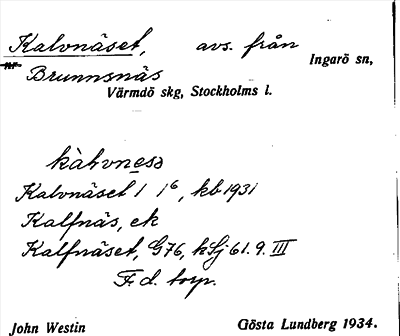 Kalvnäset, avs. från
Ingarö sn,
Brunnsnäs
Värmdö skg, Stockholms l.
kàlvnesa
Kalvnäset 1 1⁶, kb 1931
Kalfnäs, ek
Kalfnäset, G76, hSj 61.9.III
F.d. torp.
John Westin
Gösta Lundberg 1934.